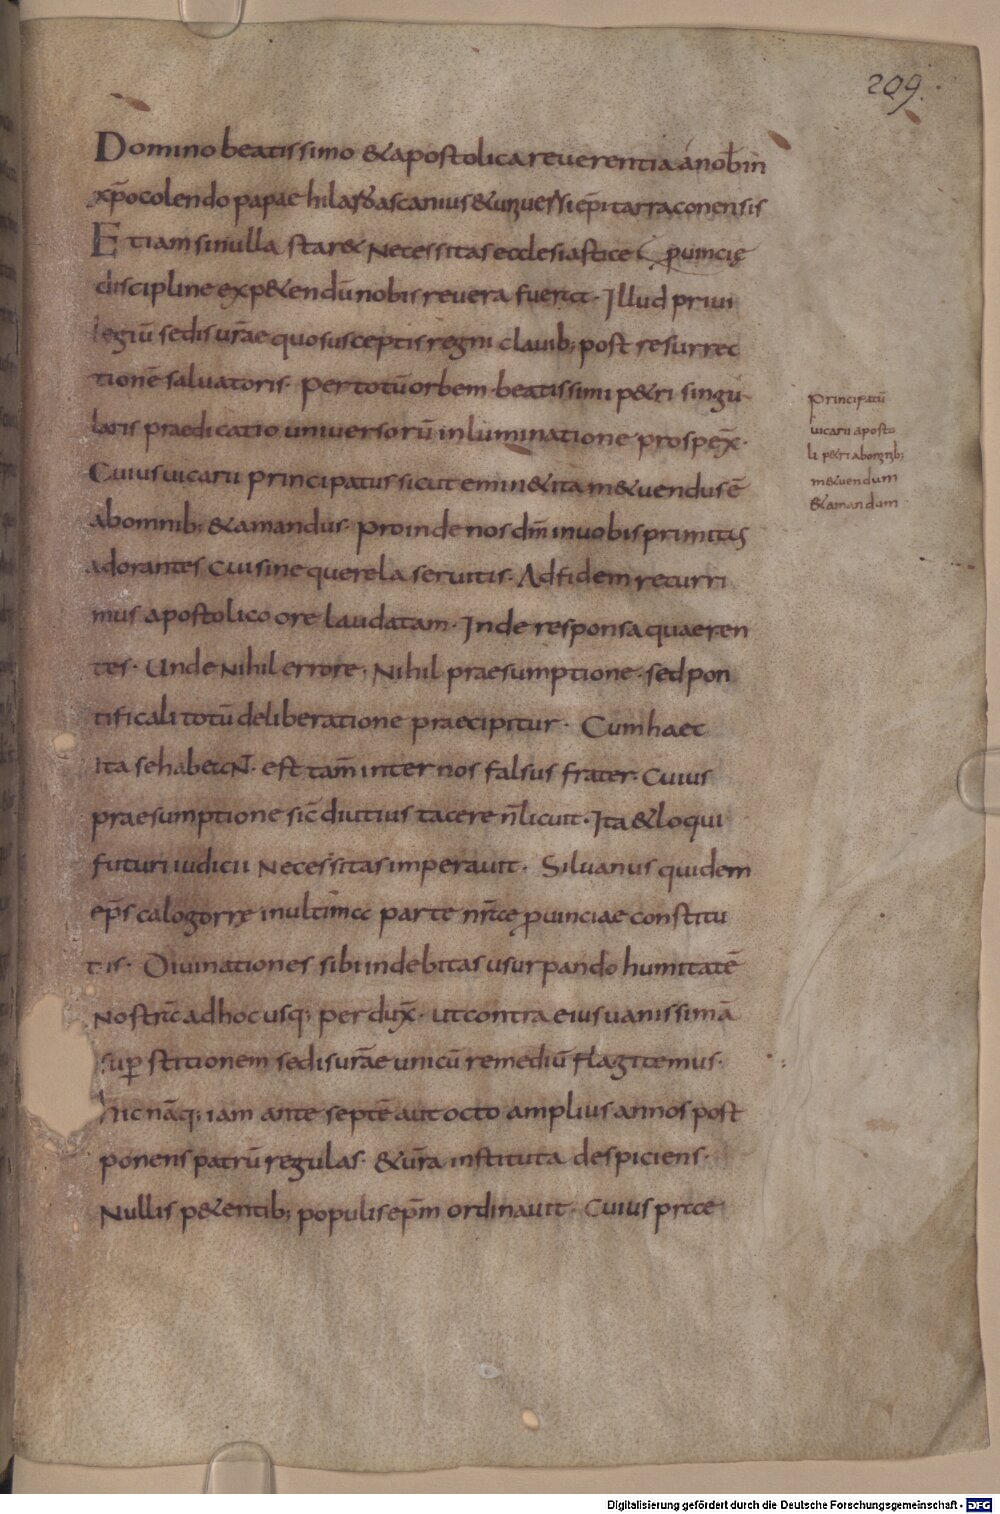 209.
Domino beatissimo & apostolica reuerentia a nob in
xp̄o colendo papae hilaro ascanius & uniuersi ep̄i tarraconensis
Etiam si nulla star& necessitas ecclesiastice ꝓuincię
discipline exp&endū nobis reuera fuerat. Illud priui
legiū sedis ur̄ae quo susceptis regni clauib; post resurrec
tionē saluatoris. per totū orbem beatissimi p&ri singu
laris praedicatio uniuersorū inluminatione prospex̄.
Cuius uicarii principatus sicut emin& ita m&uendus ē
ab omnib; & amandus. proinde nos dm̄ in uobis primitus
adorantes cui sine querela seruitis. Ad fidem recurri
mus apostolico ore laudatam. Inde responsa quaeren
tes. Unde nihil errore, nihil praesumptione. sed pon
tificali totū deliberatione praecipitur. Cum haec
Ita se habeant. est tam̄ inter nos falsus frater. cuius
praesumptione sic̄ diutius tacere n̄ licuit. Ita & loqui
futuri iudicii necessitas imperauit. Siluanus quidem
ep̄s calogorrę in ultima parte nr̄ae ꝓuinciae constitu
tis. Diuinationes sibi indebitas usurpando humitatē
nostrā ad hoc usq; perdux̄. ut contra eius uanissimā
suꝑstitionem sedis ur̄ae unicū remediū flagitemus.
hic nāq; iam ante septē aut octo amplius annos post
ponens patrū regulas. & ur̄a instituta despiciens.
Nullis p&entib; populis ep̄m ordinauit. Cuius prae
principatū
uicarii aposto
li p&ri ab omnib;
m&uendum
& amandum
Digitalisierung gefördert durch die Deutsche Forschungsgemeinschaft - DFG